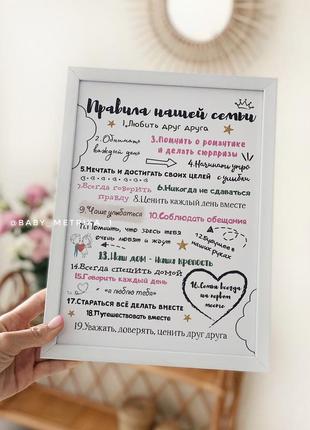 Правила нашей семьи
1.Любить друг друга
2.Обнимать каждый день
3.Помнить о романтике
и делать сюрпризы
4.Начинать утро
с улыбки
5.Мечтать и достигать своих целей
7.Всегда говорить
правду
6.Никогда не сдаваться
8.Ценить каждый день вместе
9.Чаще улыбаться
10.Соблюдать обещания
11.Помнить, что здесь тебя
очень любят и ждут
12.Будущее в
наших руках
13.Наш дом - наша крепость
14.Всегда спешить домой
15.Говорить каждый день
"я люблю тебя"
16.Семья всегда
на первом
месте
17.Стараться всё делать вместе
18.Путешествовать вместе
19.Уважать, доверять, ценить друг друга
@BABY_METRIKA_1